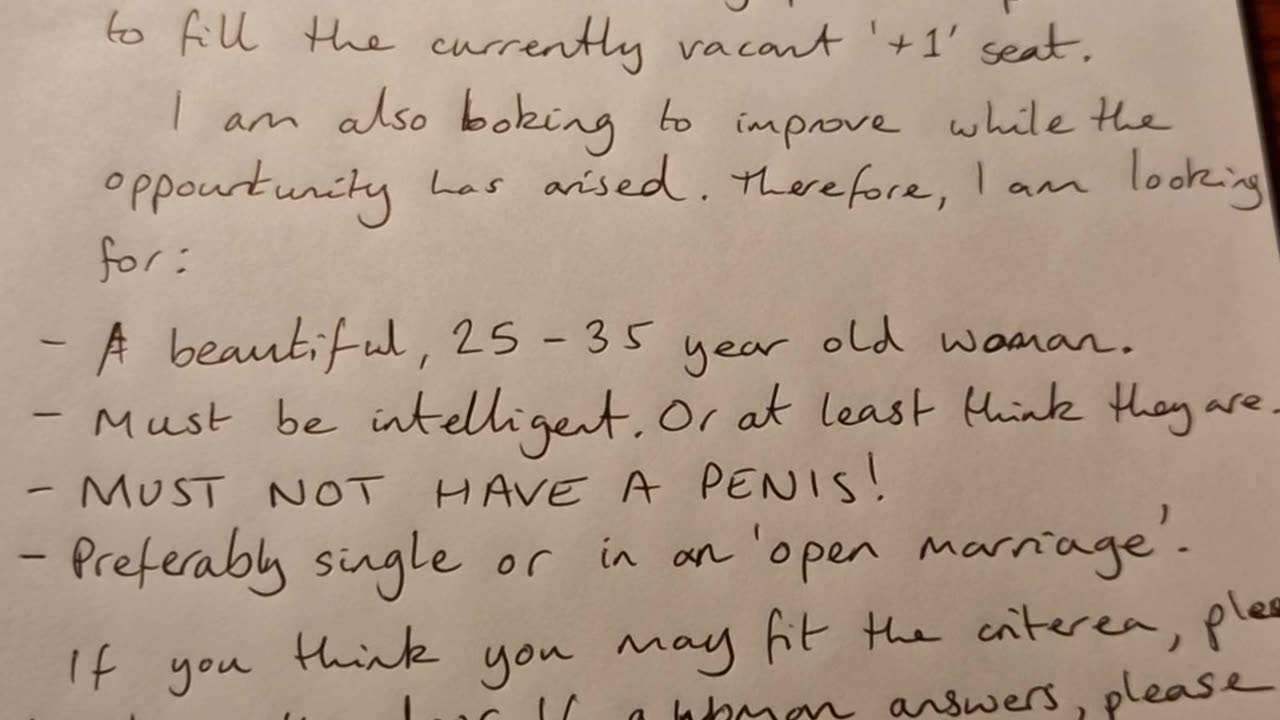 to fill the currently vacant '+1' seat.
I am also looking to improve while the
oppourtunity has arised. Therefore, I am looking
for:
- A beautiful, 25-35 year old woman.
- Must be intelligent. Or at least think they are.
- MUST NOT HAVE A PENIS!
- Preferably single or in an 'open marriage'.
If you think you may fit the criterea,
If a woman answers, please